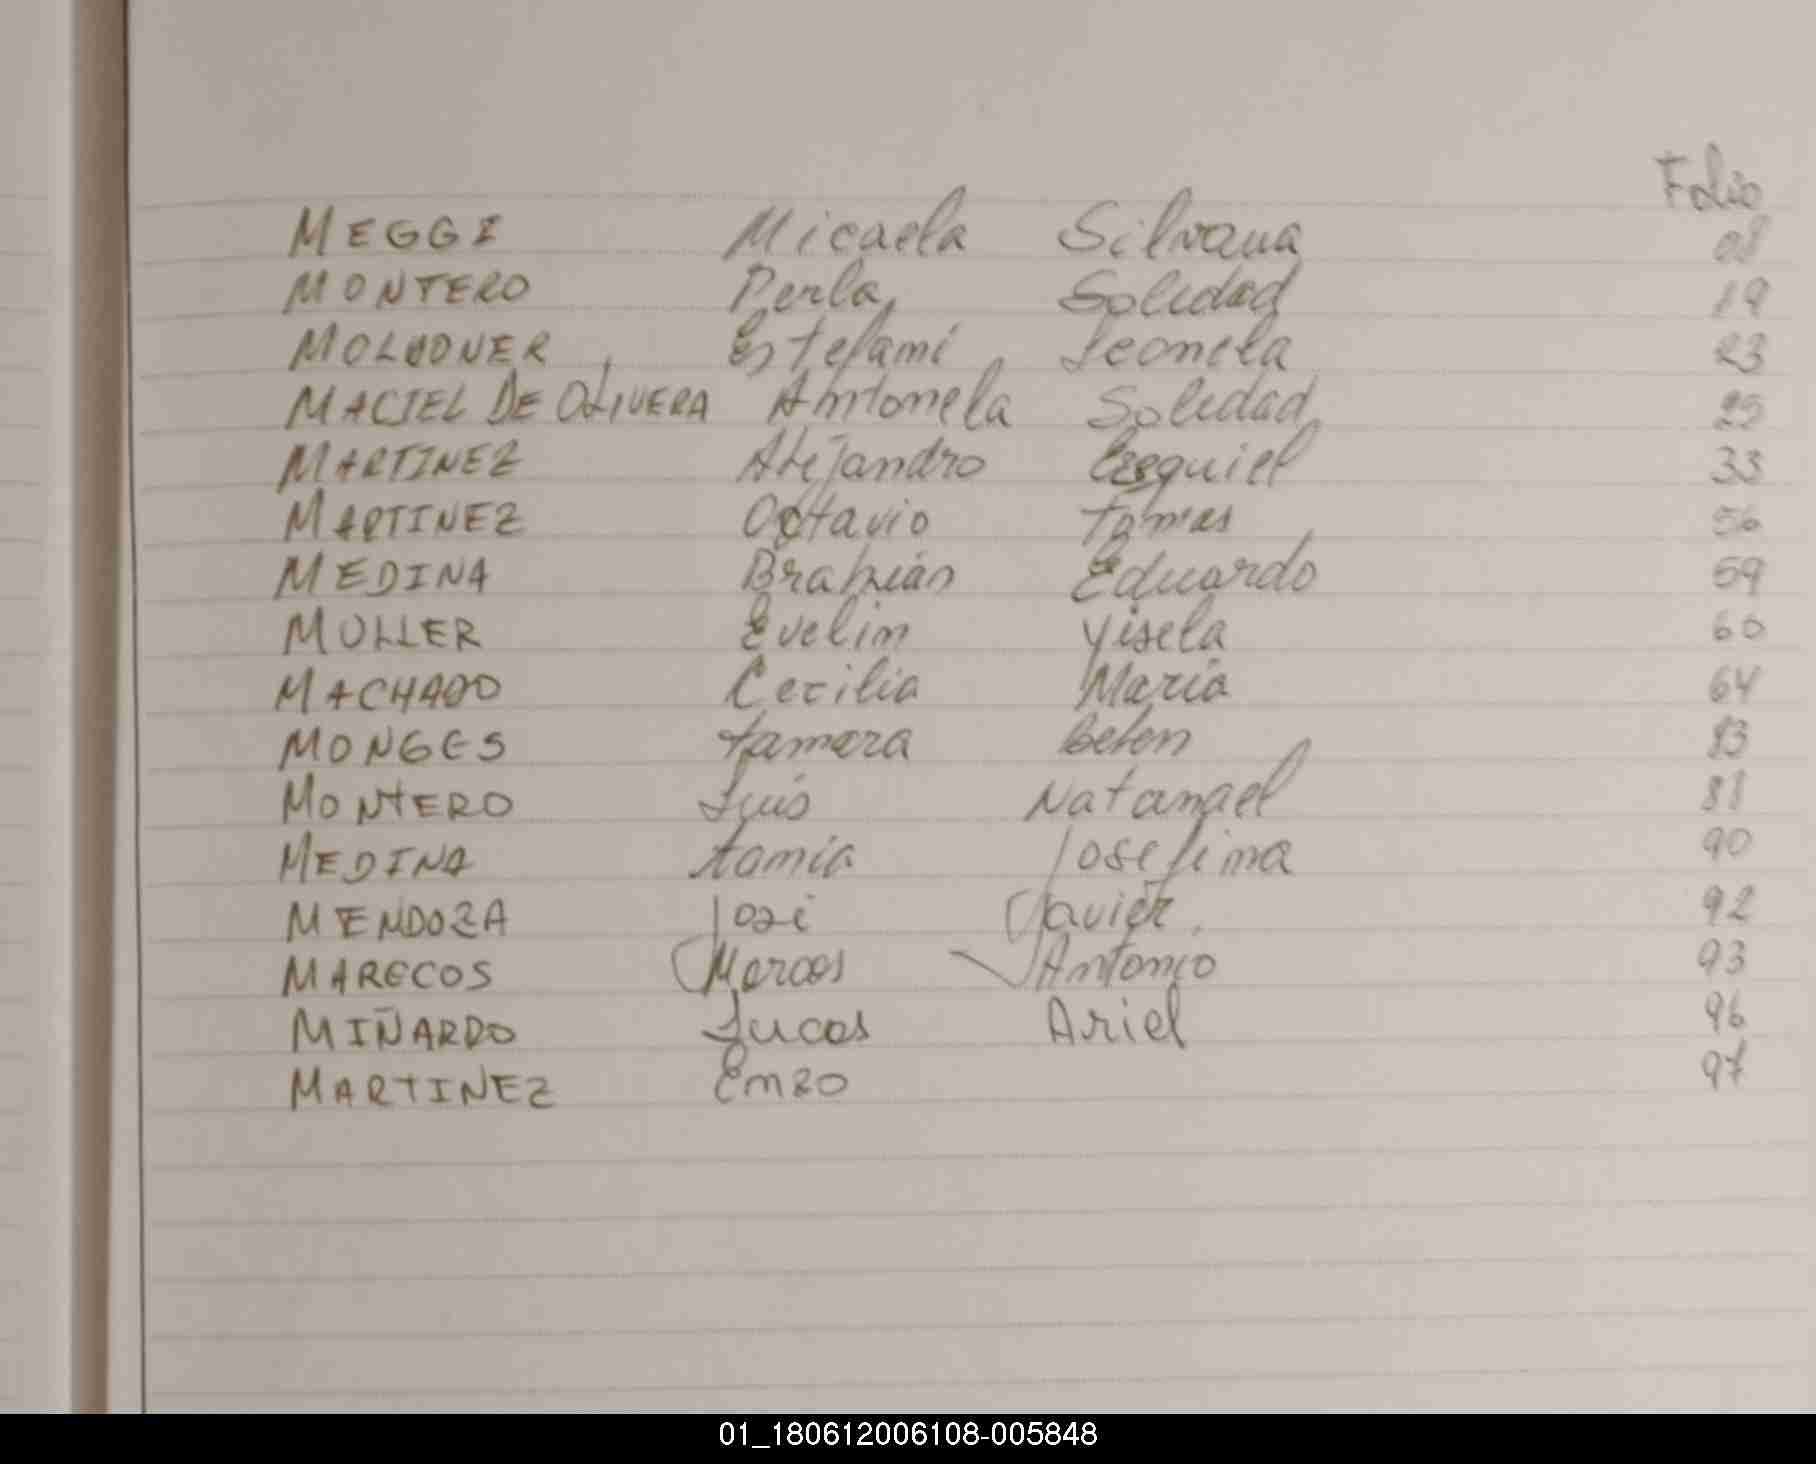 Folio
MEGGI Micaela Silvana 08
MONTERO Perla Soledad 19
MOLODNER Estefani Leonela 23
MACIEL DE OLIVERA Antonela Soledad 25
MARTINEZ Alejandro Ezequiel 33
MARTINEZ Octavio Tomas 56
MEDINA Brahian Eduardo 59
MULLER Evelin Yisela 60
MACHADO Cecilia Maria 64
MONGES Tamara Belen 83
MONTERO Luis Natanael 88
MEDINA Tamia Josefina 90
MENDOZA José Javier. 92
MARECOS Marcos Antonio 93
MIÑARDO Lucas Ariel 96
MARTINEZ Enzo 97
01_180612006108-005848